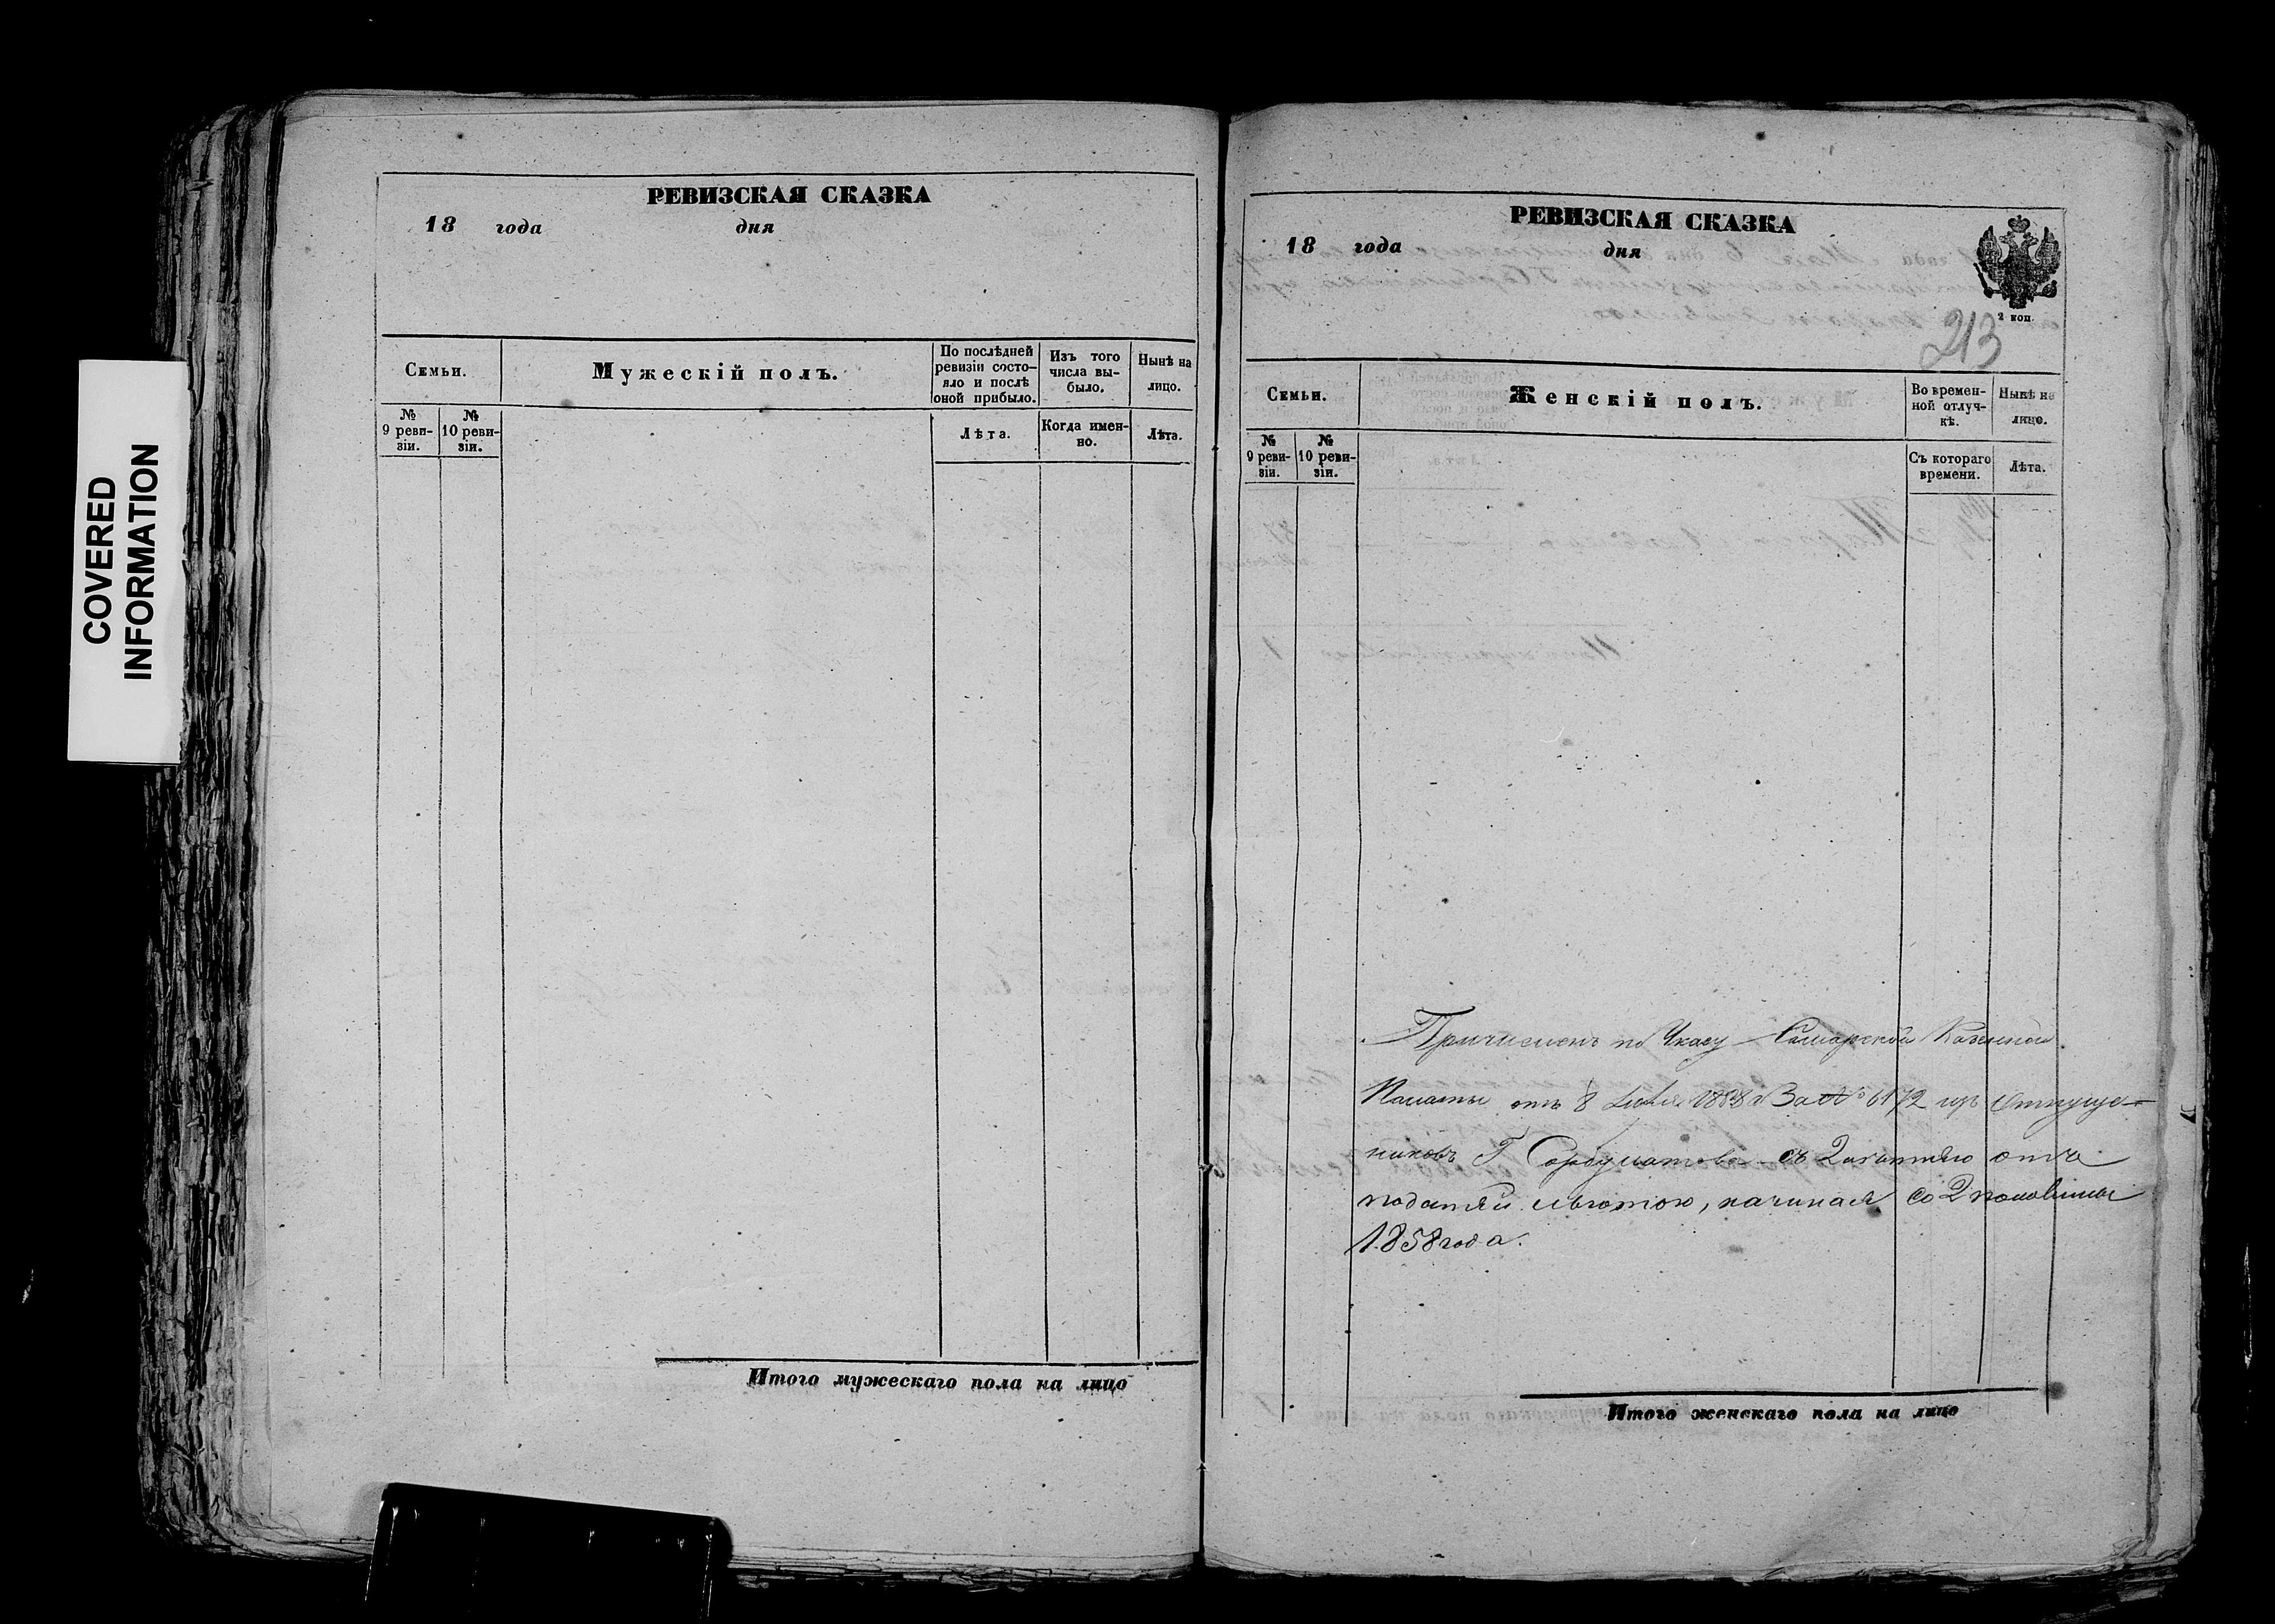 COVERED
INFORMATION
РЕВИЗСКАЯ СКАЗКА
18 года дня
Семьи.
Мужескій полъ.
По послѣдней ревизіи состояло и послѣ оной прибыло.
Изъ того числа выбыло.
Нынѣ на лицо.
№ 9 ревизіи.
№ 10 ревизіи.
Лѣта.
Когда именно.
Лѣта.
Итого мужескаго пола на лицо
РЕВИЗСКАЯ СКАЗКА
18 года дня
2 коп.
213
Семьи.
Женскій полъ.
Во временной отлучкѣ.
Нынѣ на лицо.
№ 9 ревизіи.
№ 10 ревизіи.
Съ котораго времени.
Лѣта.
Причисленъ по Указу Самарской Казенной
Палаты отъ 8 1858 За № 6172 изъ отпуще-
никовъ Г съ
податей льготою, начиная со 2 половины
1858 года.
Итого женскаго пола на лицо